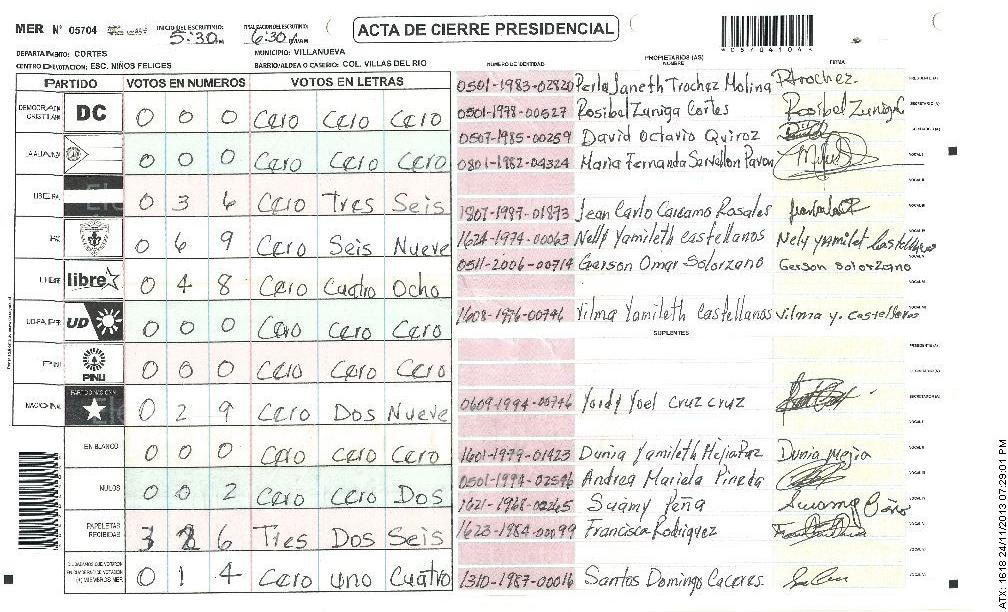 MER Nº 05704 INICIO DEL ESCRUTINIO: 5:30 FINALIZACION DEL ESCRUTINIO: 6:30
ACTA DE CIERRE PRESIDENCIAL
*05704104*
DEPARTAMENTO: CORTES MUNICIPIO: VILLANUEVA
CENTRO DE VOTACION: ESC. NIÑOS FELICES BARRIO/ALDEA O CASERIO: COL. VILLAS DEL RIO
PARTIDO VOTOS EN NUMEROS VOTOS EN LETRAS
DEMOCRACIA CRISTIANA DC 0 0 0 Cero Cero Cero
ALIANZA 0 0 0 Cero Cero Cero
LIBERAL 0 3 6 Cero Tres Seis
0 6 9 Cero Seis Nueve
LIBRE libre 0 4 8 Cero Cuatro Ocho
UD 0 0 0 Cero Cero Cero
PINU PINU 0 0 0 Cero Cero Cero
NACIONAL PARTIDO NACIONAL 0 2 9 Cero Dos Nueve
EN BLANCO 0 0 0 Cero Cero Cero
NULOS 0 0 2 Cero Cero Dos
PAPELETAS RECIBIDAS 3 2 6 Tres Dos Seis
CIUDADANOS QUE VOTARON EN CUADERNO DE VOTACION (+) MIEMBROS MER 0 1 4 Cero uno Cuatro
PROPIETARIOS (AS)
NUMERO DE IDENTIDAD NOMBRE FIRMA
0501-1983-02820 Perla Janeth Trochez Molina Ptrochez. PRESIDENTE (A)
0501-1978-00527 Rosibal Zuniga Cortes Rosibal Zuniga C SECRETARIO (A)
0507-1985-00259 David Octavio Quiroz
0801-1982-04324 Maria Fernanda Servellon Pavon VOCAL I
VOCAL II
1807-1987-01873 Jean Carlo Carcamo Rosales VOCAL III
1624-1974-00063 Nelly Yamileth Castellanos Nely yamilet Castellanos VOCAL IV
0511-2006-00714 Gerson Omar Solorzano Gerson Solorzano VOCAL V
VOCAL VI
1608-1976-00746 Vilma Yamileth Castellanos Vilma y. Castellanos VOCAL VII
SUPLENTES
PRESIDENTE (A)
SECRETARIO (A)
0609-1994-00746 Yordy Yoel Cruz cruz
VOCAL I
VOCAL II
1601-1979-01423 Dunia Yamileth Mejia Paz Dunia Mejia
0501-1994-02596 Andrea Mariela Pineda VOCAL III
1621-1968-00265 Suamy Peña VOCAL IV
1623-1984-00099 Francisca Rodriguez VOCAL V
1310-1987-00016 Santos Domingo Caceres VOCAL VII
ATX: 1618 24/11/2013 07:29:01 PM